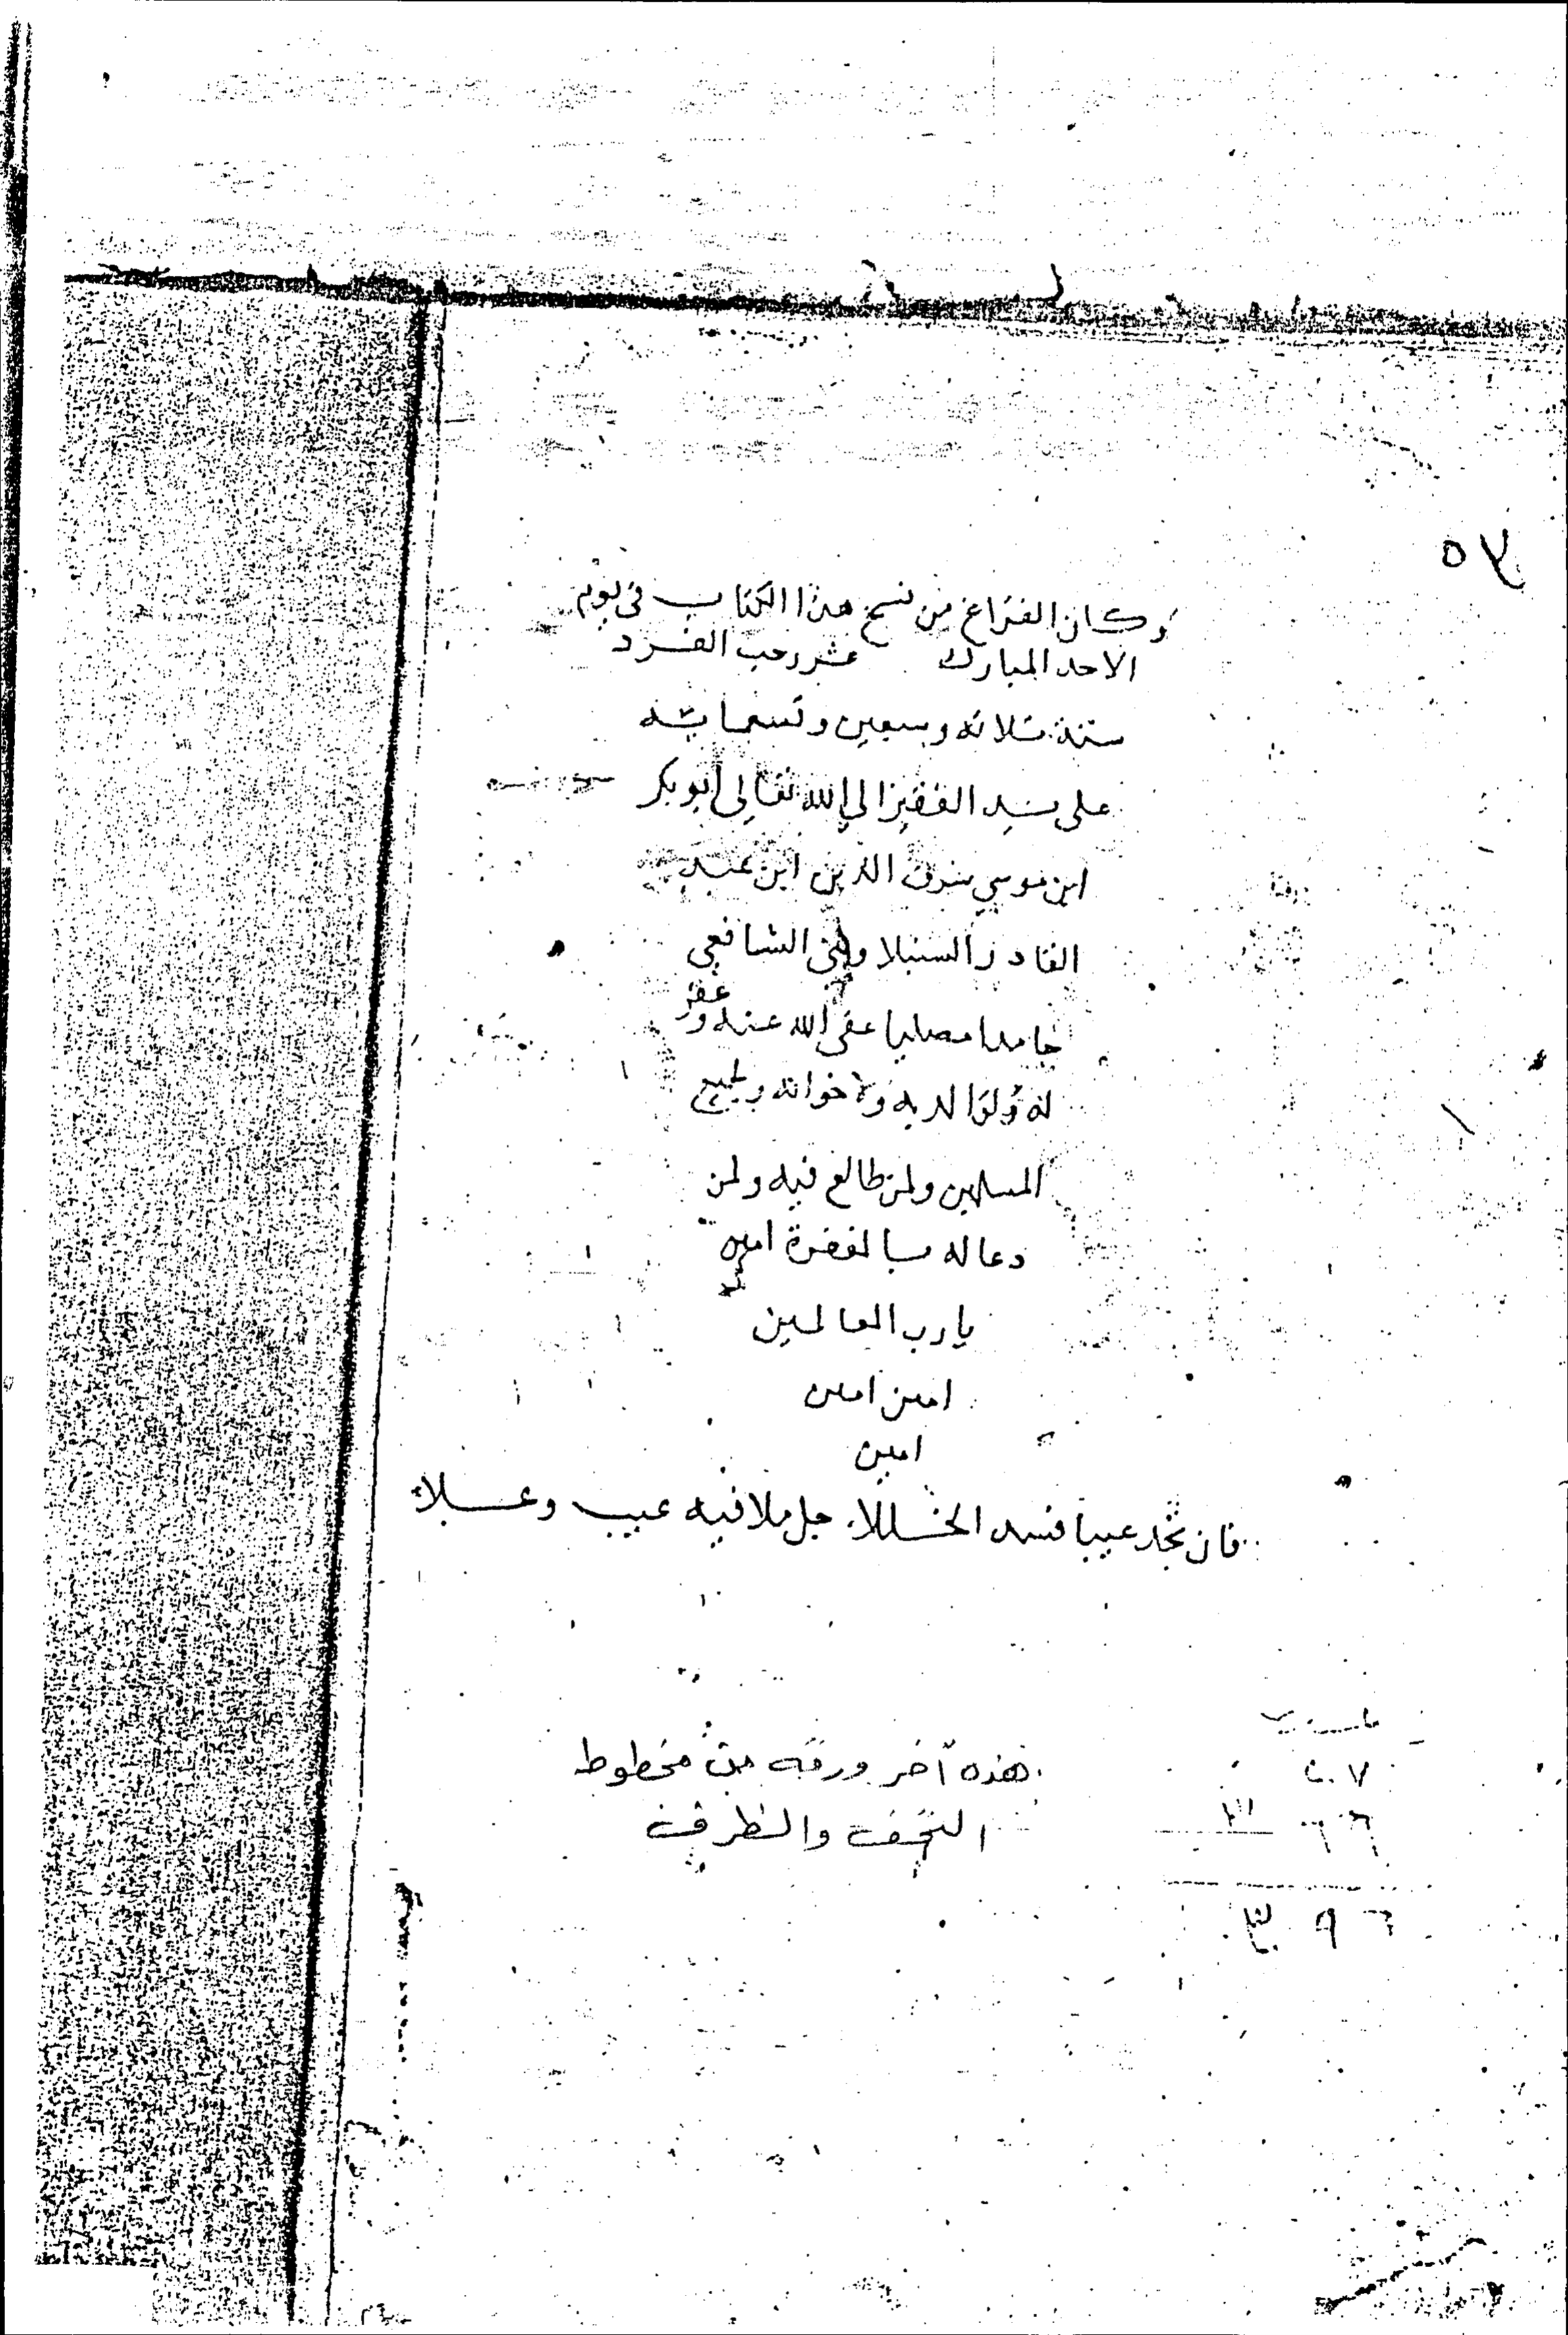 وكان الفراغ من نسخ هذا الكتاب في يوم
الاحد المبارك عشر رجب الفرد
سنة ثلاثه وسبعين وتسعمايه
على يد الفقير الي الله تعالى ابو بكر
ابن موسي شرف الدين ابن عبد
القادر السنبلاويني الشافعي
حامدا مصليا عفى الله عنه وغفر
له ولوالديه ولاخوانه ولجميع
المسلمين ولمن طالع فيه ولمن
دعا له بالمغفرة امين
يارب العالمين
امين امين
امين
فان تجد عيبا فسد الخللا جل من لا فيه عيب وعلا
هذه آخر ورقه من مخطوط
التحف والظرف